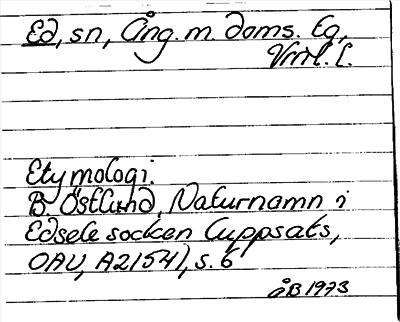 Ed, sn, Ång. m. doms. tg,
Vrml. l.
Etymologi.
B. Östlund, Naturnamn i
Edsele socken (uppsats,
OAU, A2154), s. 6
ÅB 1973